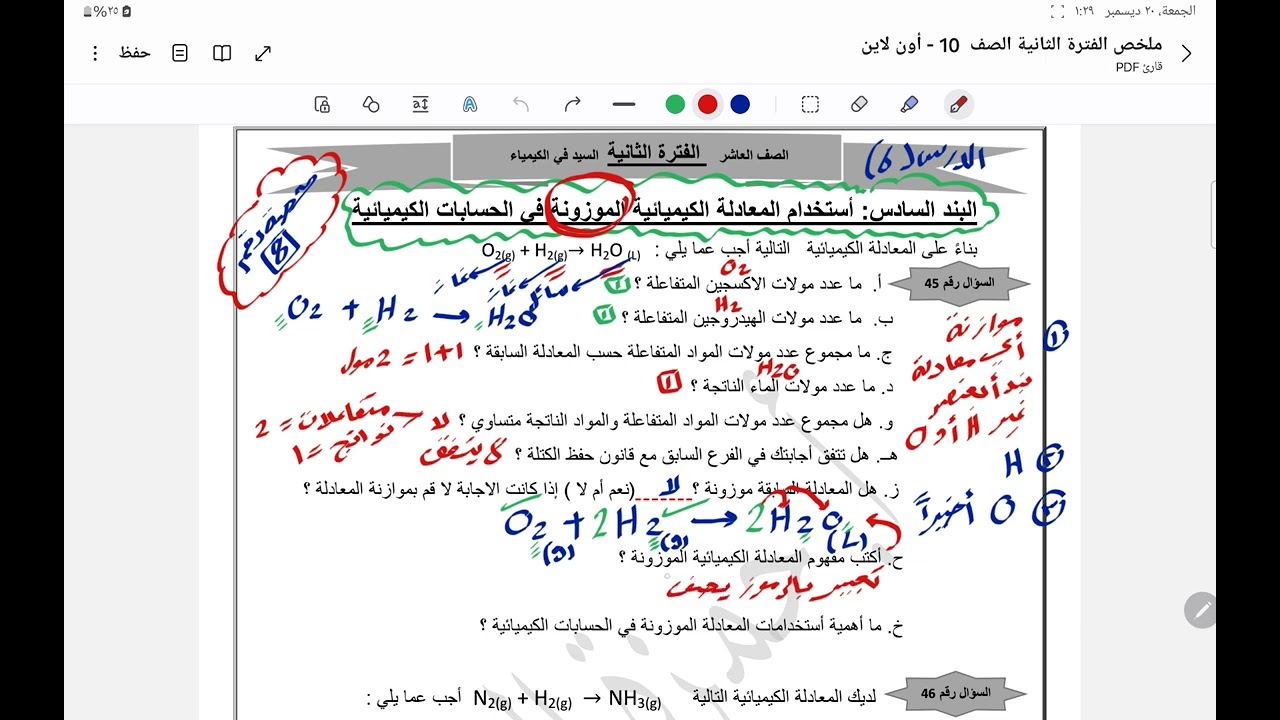 الجمعة، ٢٠ ديسمبر ١:٢٩
٢٥%
ملخص الفترة الثانية الصف 10 - أون لاين
قارئ PDF
حفظ
الصف العاشر الفترة الثانية السيد في الكيمياء
الدرس (6)
صفحة رقم
8
البند السادس: أستخدام المعادلة الكيميائية الموزونة في الحسابات الكيميائية
بناءً على المعادلة الكيميائية التالية أجب عما يلي : O2(g) + H2(g)→ H2O (L)
السؤال رقم 45
غاز غاز سائل
O2 + H2 → H2O
O2
أ. ما عدد مولات الاكسجين المتفاعلة ؟ 1
H2
ب. ما عدد مولات الهيدروجين المتفاعلة ؟ 1
ج. ما مجموع عدد مولات المواد المتفاعلة حسب المعادلة السابقة ؟ 1+1 = 2 مول
H2O
د. ما عدد مولات الماء الناتجة ؟ 1
و. هل مجموع عدد مولات المواد المتفاعلة والمواد الناتجة متساوي ؟ لا
متفاعلات = 2
نواتج = 1
هـ. هل تتفق أجابتك في الفرع السابق مع قانون حفظ الكتلة ؟ لا يتفق
ز. هل المعادلة السابقة موزونة ؟ لا (نعم أم لا ) إذا كانت الاجابة لا قم بموازنة المعادلة ؟
O2(g) + 2H2(g) → 2H2O(L)
① موازنة
أي معادلة
نبدأ بعنصر
غير H أو O
② H
③ O أخيراً
ح. أكتب مفهوم المعادلة الكيميائية الموزونة ؟
تعبير بالرموز يصف
خ. ما أهمية أستخدامات المعادلة الموزونة في الحسابات الكيميائية ؟
السؤال رقم 46
لديك المعادلة الكيميائية التالية N2(g) + H2(g) → NH3(g) أجب عما يلي :